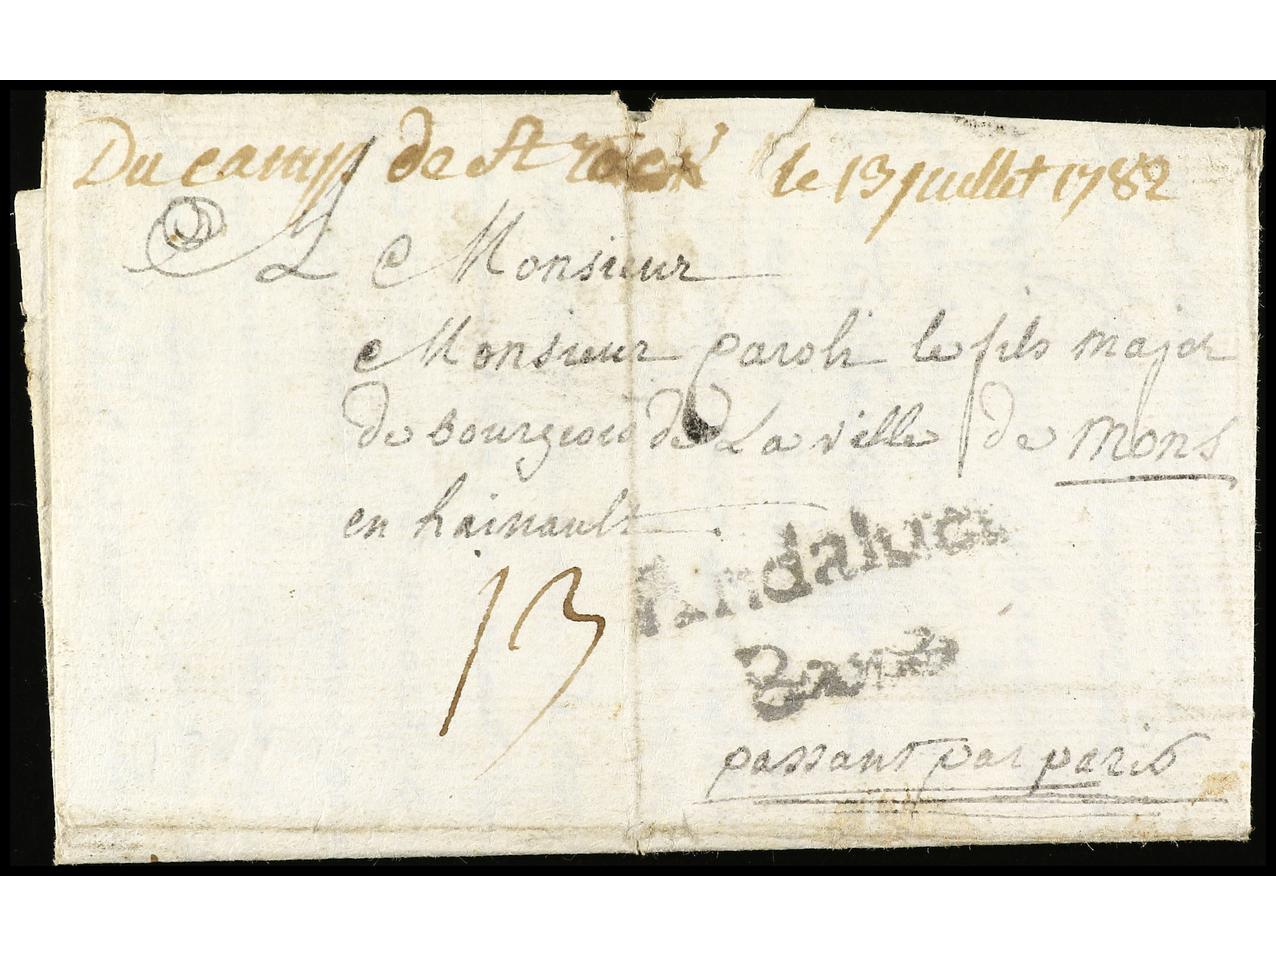 Du camp de St roch le 13 juillet 1782
A Monsieur
Monsieur paroli le fils major
de bourgeois de La ville de Mons
en hainault
13
Andalucia
Baxa
passant par paris